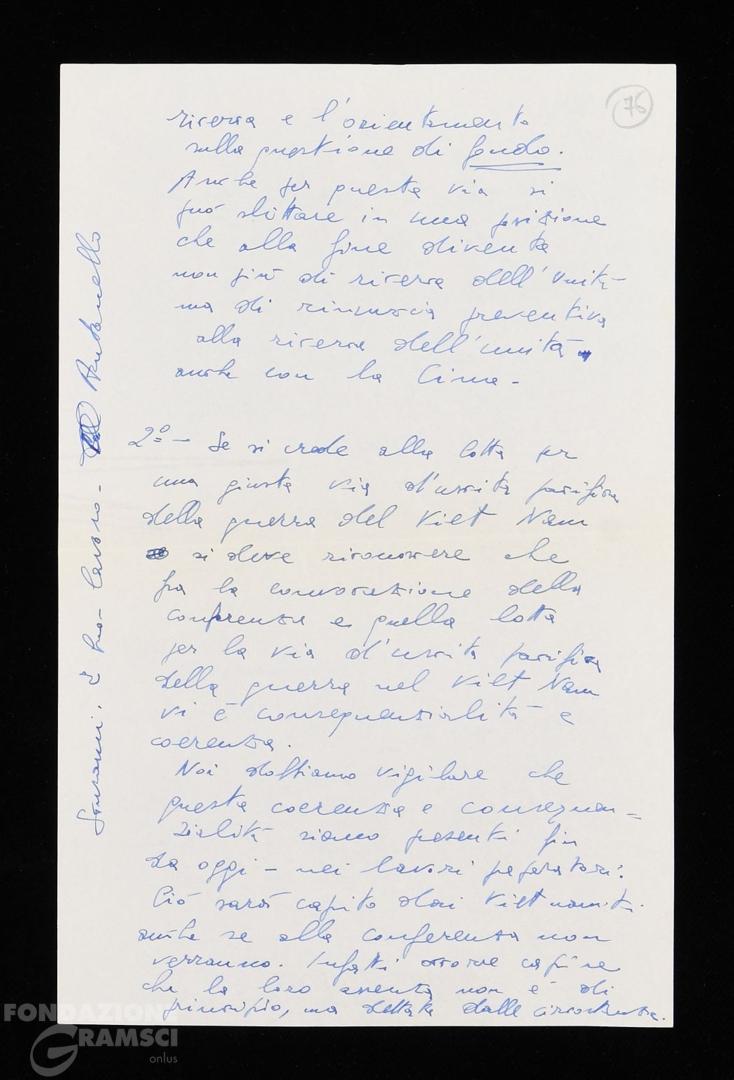 76
ricerca e l'orientamento
sulla questione di fondo.
Anche per questa via si
può slittare in una posizione
che alla fine diventa
non più di ricerca dell'unità
ma di rinuncia preventiva
alla ricerca dell'unità
anche con la Cina -
2º - Se si crede alla lotta per
una giusta via d'uscita pacifica
della guerra del Viet Nam
si deve riconoscere che
fra la convocazione della
conferenza e quella lotta
per la via d'uscita pacifica
della guerra nel Viet Nam
vi è consequenzialità e
coerenza.
Noi dobbiamo vigilare che
questa coerenza e consequen=
zialità siano presenti fin
da oggi - nei lavori preparatori.
Ciò sarà capito dai Vietnamiti
anche se alla conferenza non
verranno. Infatti occorre capire
che la loro assenza non è di
principio, ma dettata dalle circostanze.
lavoro -
FONDAZIONE
GRAMSCI
onlus